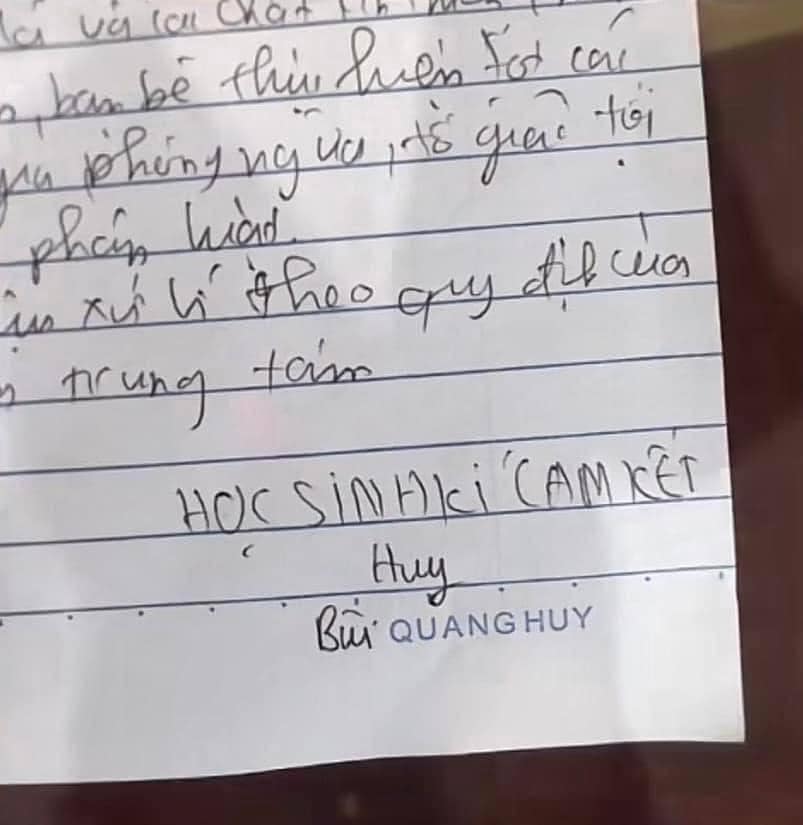 và các chất
, bạn bè thực hiện tốt các
phòng ngừa, tố giác tội
phân luân.
xử lí theo quy định của
trung tâm
HỌC SINH KÍ CAM KẾT
Huy
Bùi QUANG HUY